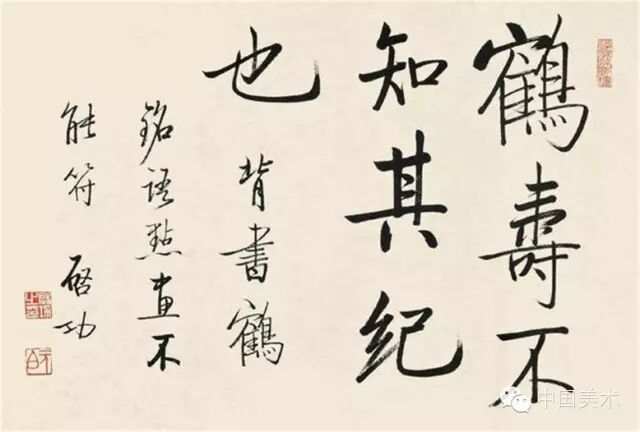 鶴壽不
知其紀
也
背書鶴
銘語點畫不
能符 啓功
中国美术